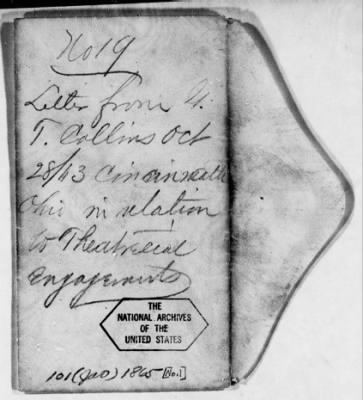 No 19
Letter from G.
T. Collins Oct
28/63 Cincinnatti
Ohio in relation
to Theatrical
engagements
THE
NATIONAL ARCHIVES
OF THE
UNITED STATES
101 (JAO) 1865 [No.1]